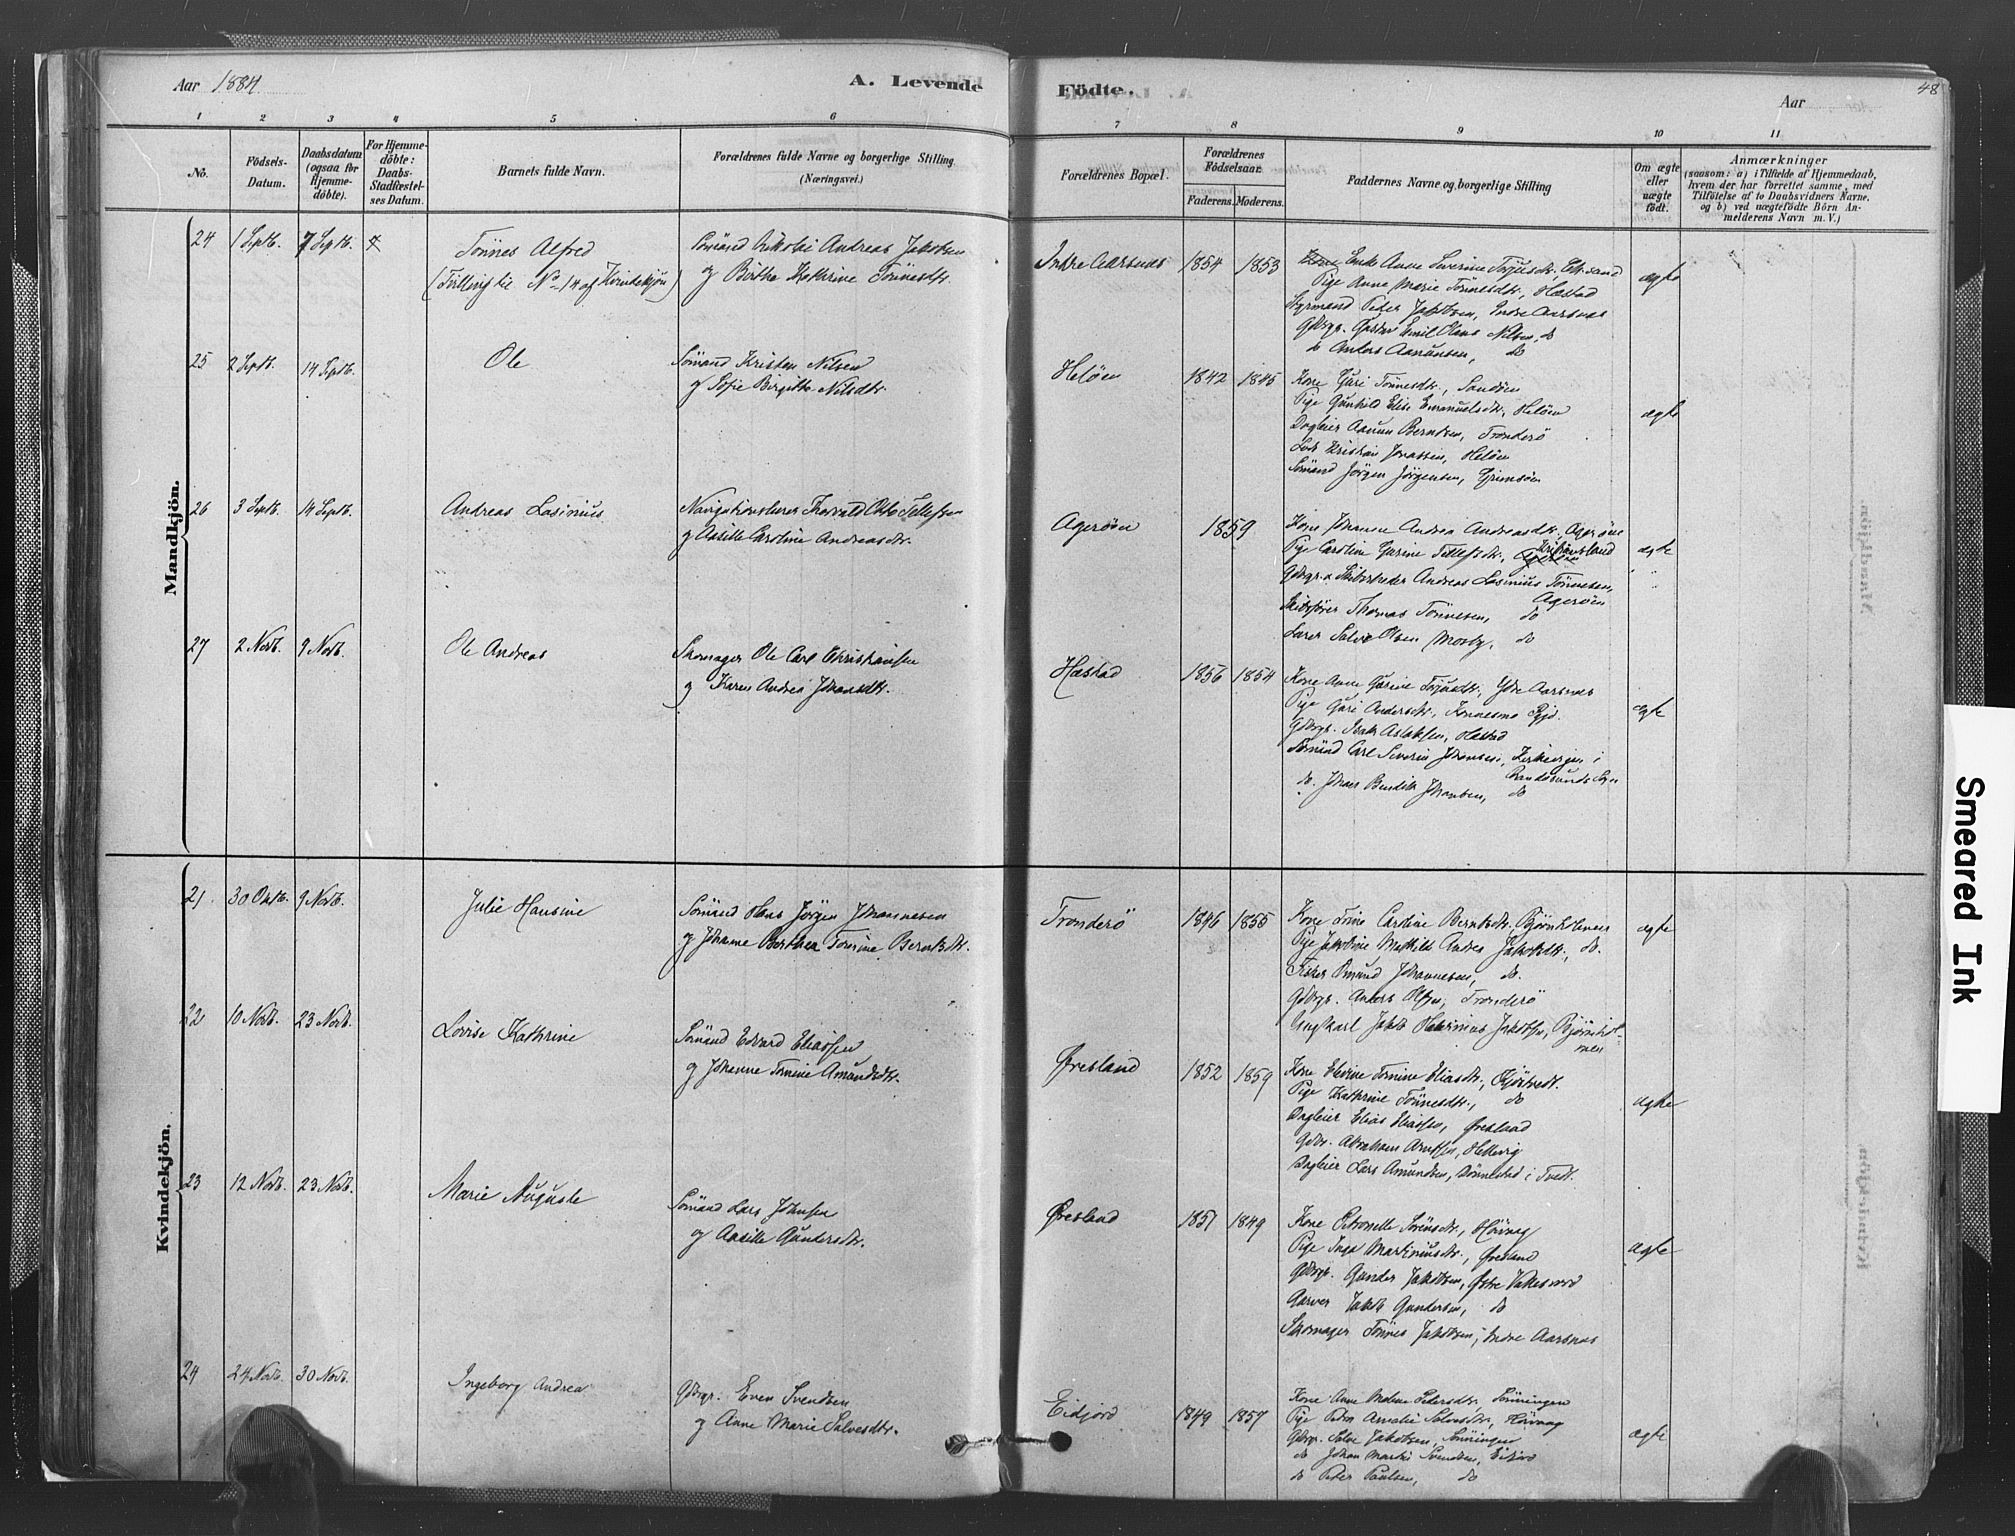 Aar 1884.
A. Levende
Födte.
Aar
48
1 2 3 4 5 6 7 8 9 10 11
No.
Födsels-Datum.
Daabsdatum (ogsaa for Hjemme-döbte).
For Hjemme-döbte: Daabs-Stadfæstel-ses Datum.
Barnets fulde Navn.
Forældrenes fulde Navne og borgerlige Stilling (Næringsvei.)
Forældrenes Bopæl.
Forældrenes Födselsaar.
Faderens. Moderens.
Faddernes Navne og borgerlige Stilling
Om ægte eller uægte födt.
Anmærkninger
(saasom: a) i Tilfælde af Hjemmedaab,
hvem der har forrettet samme, med
Tilföielse af to Daabsvidners Navne.
og b) ved uægtefödte Börn An-
melderens Navn m. V.)
Mandkjön.
24 1 Septb. 7 Septb.
Tönnes Alfred
(Tilling til No 14 af Kvindekjön)
Sömand Nikolai Andreas Jakobsen
og Birthe Kathrine Tönnesdtr.
Indre Aarsnes 1854 1853
Enke Anne Severine Terjusdtr.,
Pige Anne Marie Tönnesdtr., Hæstad
Styrmand Peder Jakobsen, Indre Aarsnes
Gdbrgr. Gustav Emil Olaus Nilsen, do
do Anders Aanunsen, do
ægte
25 2 Septb. 14 Septb.
Ole
Sömand Kristen Nilsen
og Sofie Birgitte Nilsdtr.
Helöen 1842 1845
Kone Guri Tönnesdtr., Sandöen
Pige Gunhild Elise Emanuelsdtr., Helöen
Dagleier Aanun Berntsen, Tronderö
Lods Kristian Jonassen, Helöen
Sömand Jörgen Jörgensen, Grimsöen
ægte
26 3 Septb. 14 Septb.
Andreas Lasinius
Navigationslærer Thorvald Otto Tellefsen
og Aasille Caroline Andreasdtr.
Ageröen 1859
Kone Johanne Andrea Andreasdtr., Ageröen
Pige Caroline Gurine Tellefsdtr., Kristiansand
Gdbrgr. & Skibsreder Andreas Lasinius Tönnesen,
Ageröen
Skibsförer Thomas Tönnesen, do
Lærer Salve Olsen Mosby, do
ægte
27 2 Novb. 9 Novb.
Ole Andreas
Skomager Ole Carl Christiansen
og Karen Andrea Johansdtr.
Hæstad 1856 1854
Kone Anne Gurine Terjusdtr., Ydre Aarsnes
Pige Guri Andersdtr.,
Gdbrgr. Isak Aslaksen, Hæstad
Sömand Carl Severin Johansen, i
Randesunds Sogn
do. Johan Bendik Johansen, do
ægte
Kvindekjön.
21 30 Oktb. 9 Novb.
Julie Hansine
Sömand Hans Jörgen Johannesen
og Johanne Berthea Tomine Berntsdtr.
Tronderö 1846 1855
Kone Trine Caroline Berntsdtr. Björnholmen
Pige Jakobine Mathilde Andrea Jakobsdtr., do.
Fisker Omund Johannesen, do.
Gdbrgr. Anders Olsen, Tronderö
Ungkarl Jakob Jakobsen, Björnhol-
men
ægte
22 10 Novb. 23 Novb.
Lovise Kathrine
Sömand Edvard Eliassen
og Johanne Tomine Amundsdtr.
Øresland 1852 1859
Kone Elevine Tomine Eliasdtr.,
Pige Kathrine Tönnesdtr., do
Dagleier Elias Eliassen, Øresland
Gdbr. Abraham Arntsen, Hellevig
Dagleier Lars Amundsen, Dönnestad i Tvedt.
ægte
23 12 Novb. 23 Novb.
Marie Auguste
Sömand Lars Johnsen
og Aasille Gundersdtr.
Øresland 1851 1849
Kone Petronelle Sörensdtr., Hövaag
Pige Inga Martiniusdtr., Øresland
Gdbrgr. Gunder Jakobsen, Østre Vallesværd
Garver Jakob Gundersen, do
Skomager Tönnes Jakobsen, Indre Aarsnes
ægte
24 24 Novb. 30 Novb.
Ingeborg Andrea
Gdbrgr. Even Svendsen
og Anne Marie Salvesdtr.
Eidjord 1849 1857
Kone Anne Malene Pedersdtr., Sönningen
Pige Petra Amalie Salvesdtr., Hövaag
Gdbrgr. Salve Jakobsen, Sönningen
do Johan Martin Svendsen, Eidjord
do Peder Paulsen, do
ægte
Smeared Ink